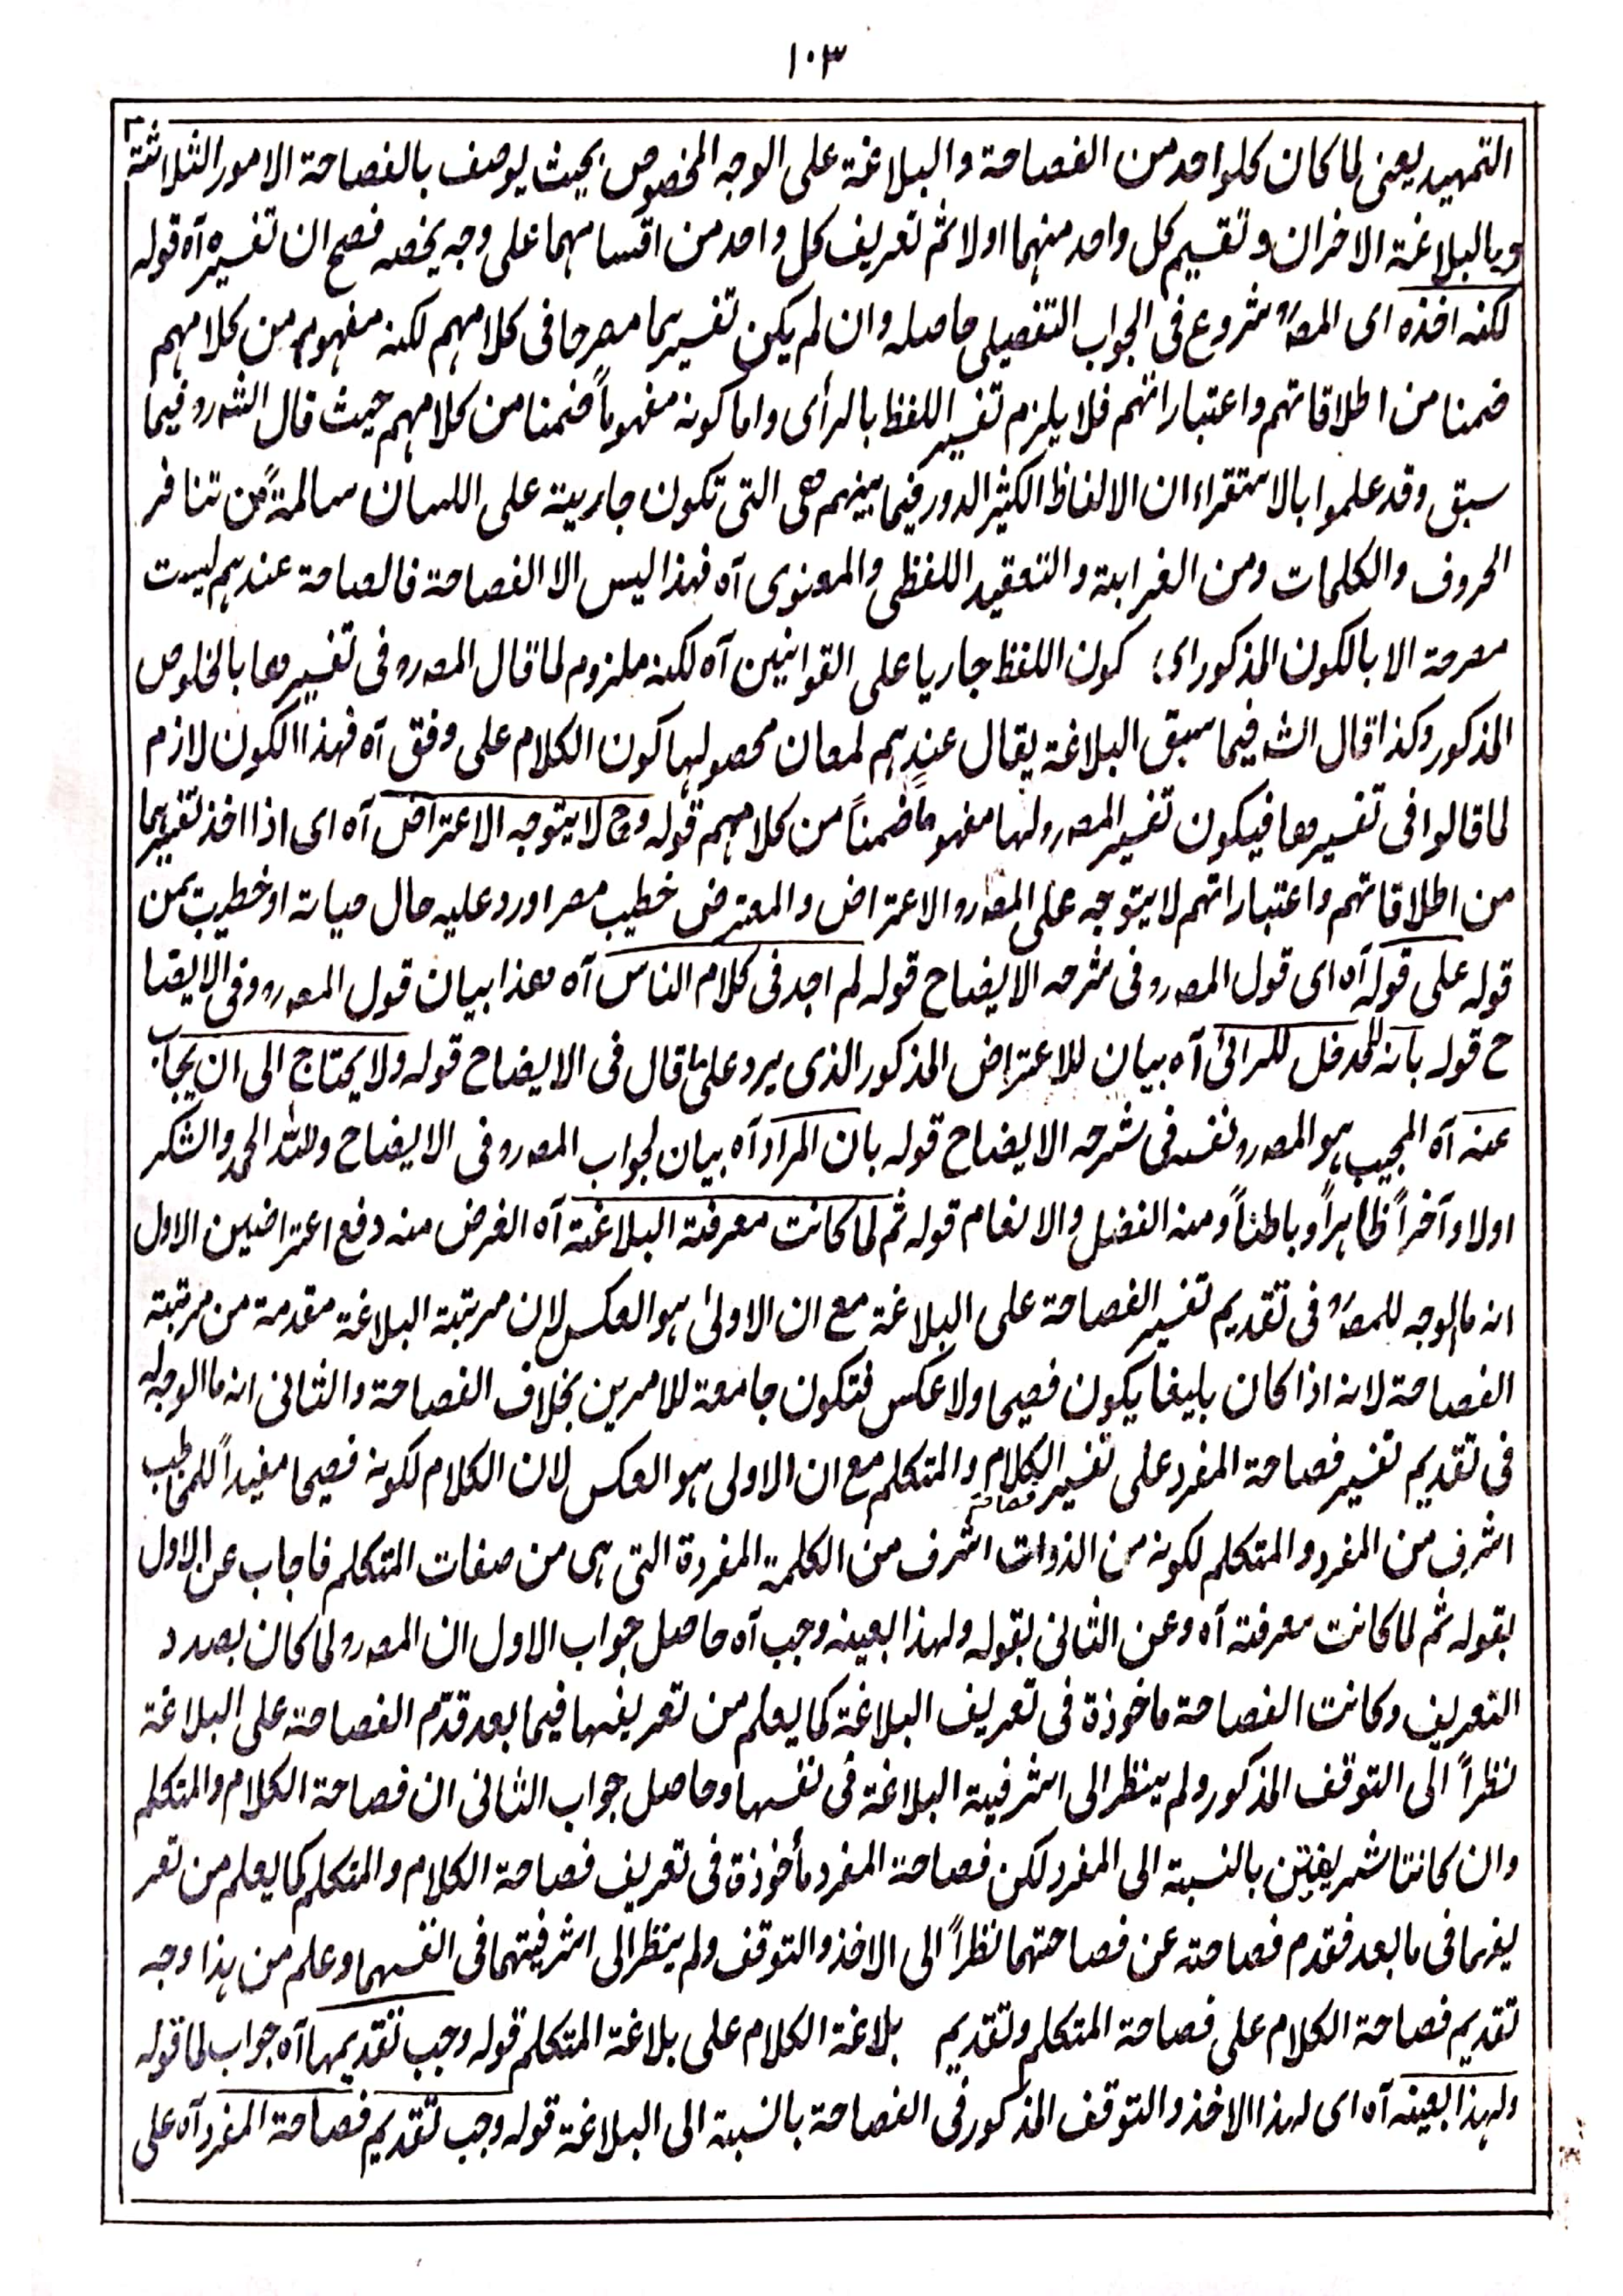 ١٠٣
التمهيد يعنى لما كان كلواحد من الفصاحة والبلاغة على الوجه المخصوص بحيث يوصف بالفصاحة الامور الثلاثة
وبالبلاغة الاخران وتقسيم كل واحد منهما اولا ثم تعريف كل واحد من اقسامهما على وجه يخصه فصح ان تفسيره آه قوله
لكنه اخذه اى المصؒ شروع فى الجواب التفصيلى حاصله وان لم يكن تفسيرها مصرحا فى كلامهم لكنه مفهوم من كلامهم
ضمنا من اطلاقاتهم واعتباراتهم فلا يلزم تفسير اللفظ بالرأى واما كونه مفهوماً ضمنا من كلامهم حيث قال الشه رو فيما
سبق وقد علموا بالاستقراء ان الالفاظ الكثير الدور فيما بينهم هى التى تكون جارية على اللسان سالمةً من تنافر
الحروف والكلمات ومن الغرابة والتعقيد اللفظى والمعنوى آه فهذا ليس الا الفصاحة فالصاحة عندهم ليست
مصرحة الا بالكون المذكور اى؛ كون اللفظ جاريا على القوانين آه لكنه ملزوم لما قال المصه رو فى تفسيرها بالخلوص
المذكور وكذا قال الشه فيما سبق البلاغة يقال عندهم لمعان محصولها كون الكلام على وفق آه فهذا الكون لازم
لما قالوا فى تفسيرها فيكون تفسير المصه رو لها مفهوما ضمناً من كلامهم قوله وح لا يتوجه الاعتراض آه اى اذا اخذ تفسيرهما
من اطلاقاتهم واعتباراتهم لا يتوجه على المصه رو الاعتراض والمعترض خطيب مصر اورد عليه حال حياته او خطيب يمن
قوله على قوله آه اى قول المصه رو فى شرحه الايضاح قوله لم اجد فى كلام الناس آه هذا بيان قول المصه رو وفى الايضا
ح قوله بانه لا مدخل للرائ آه بيان للاعتراض المذكور الذى يرد على ما قال فى الايضاح قوله ولا يحتاج الى ان يجاب
عنه آه المجيب هو المصه رو نفسه فى شرحه الايضاح قوله بان المراد آه بيان لجواب المصه رو فى الايضاح ولله الحمد والشكر
اولا وآخراً ظاهراً وباطناً ومنه الفضل والانعام قوله ثم لما كانت معرفة البلاغة آه الغرض منه دفع اعتراضين الاول
انه ما الوجه للمصؒ فى تقديم تفسير الفصاحة على البلاغة مع ان الاولىٰ هو العكس لان مرتبة البلاغة مقدمة من مرتبة
الفصاحة لانه اذا كان بليغا يكون فصيحا ولا عكس فتكون جامعة للامرين بخلاف الفصاحة والثانى انه ما الوجه له
فى تقديم تفسير فصاحة المفرد على تفسير الكلام والمتكلم مع ان الاولى هو العكس لان الكلام لكونه فصيحا مفيداً للمخاطب
فصاحة
اشرف من المفرد والمتكلم لكونه من الذوات اشرف من الكلمة المفردة التى هى من صفات المتكلم فاجاب عن الاول
بقوله ثم لما كانت معرفة آه وعن الثانى بقوله ولهذا بعينه وجب آه حاصل جواب الاول ان المصه رو لما كان بصدد
التعريف وكانت الفصاحة ماخوذة فى تعريف البلاغة كما يعلم من تعريفها فيما بعد قدّم الفصاحة على البلاغة
نظراً الى التوقف المذكور ولم ينظر الى اشرفية البلاغة فى نفسها وحاصل جواب الثانى ان فصاحة الكلام والمتكلم
وان كانتا شريفتين بالنسبة الى المفرد لكن فصاحة المفرد مأخوذة فى تعريف فصاحة الكلام والمتكلم كما يعلم من تعر
يفهما فى ما بعد فقدم فصاحته عن فصاحتهما نظراً الى الاخذ والتوقف ولم ينظر الى اشرفيتهما فى انفسهما وعلم من هذا وجه
تقديم فصاحة الكلام على فصاحة المتكلم وتقديم بلاغة الكلام على بلاغة المتكلم قوله وجب تقديمها آه جواب لما قوله
ولهذا بعينه آه اى لهذا الاخذ والتوقف المذكور فى الفصاحة بالنسبة الى البلاغة قوله وجب تقديم فصاحة المفرد آه على